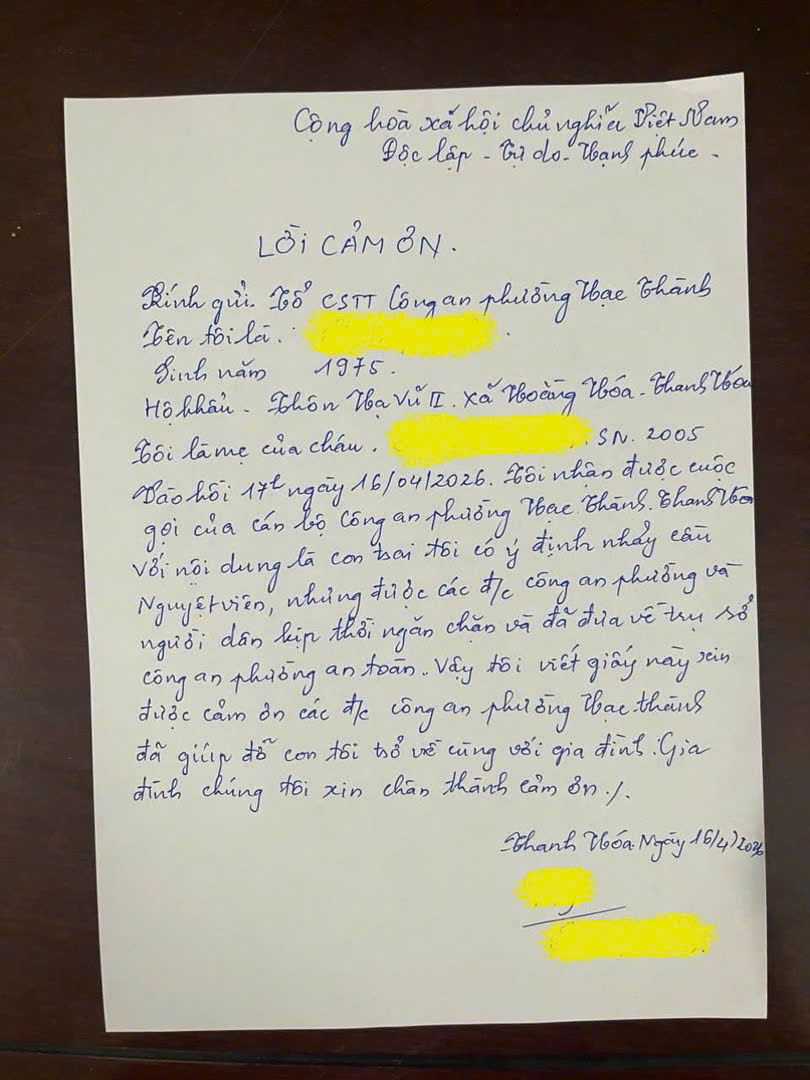 Cộng hoà xã hội chủ nghĩa Việt Nam
Độc lập - Tự do - Hạnh phúc -
LỜI CẢM ƠN.
Kính gửi. Tổ CSTT Công an phường Hạc Thành
Tên tôi là.
Sinh năm 1975.
Hộ khẩu - Thôn Hạ Vũ II. xã Hoằng Hóa - Thanh Hóa
Tôi là mẹ của cháu. . SN. 2005
Vào hồi 17h ngày 16/04/2026. Tôi nhận được cuộc
gọi của cán bộ Công an phường Hạc Thành. Thanh Hóa
với nội dung là con trai tôi có ý định nhảy cầu
Nguyệt viên, nhưng được các đ/c công an phường và
người dân kịp thời ngăn chặn và đã đưa về trụ sở
công an phường an toàn.. Vậy tôi viết giấy này xin
được cảm ơn các đ/c công an phường Hạc thành
đã giúp đỡ con tôi trở về cùng với gia đình. Gia
đình chúng tôi xin chân thành cảm ơn ./.
Thanh Hóa. Ngày 16/4/2026